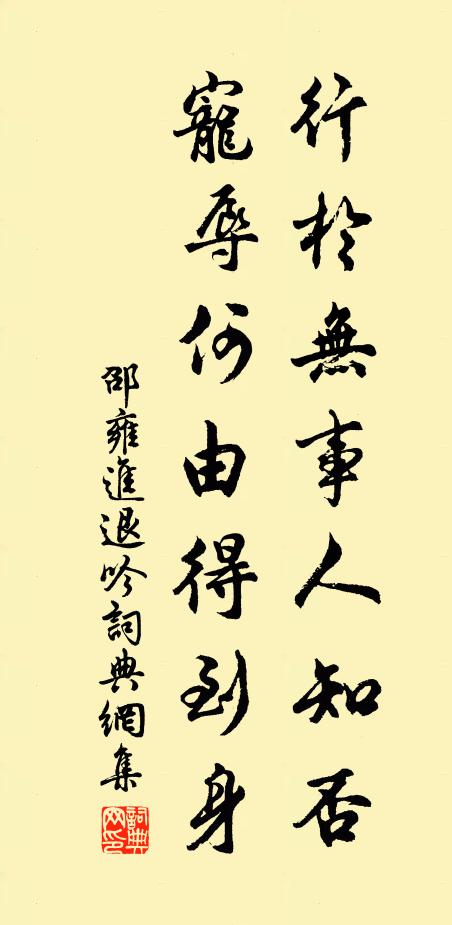 行於無事人知否
寵辱何由得到身
邵雍進退吟詞典網集
詞典網印